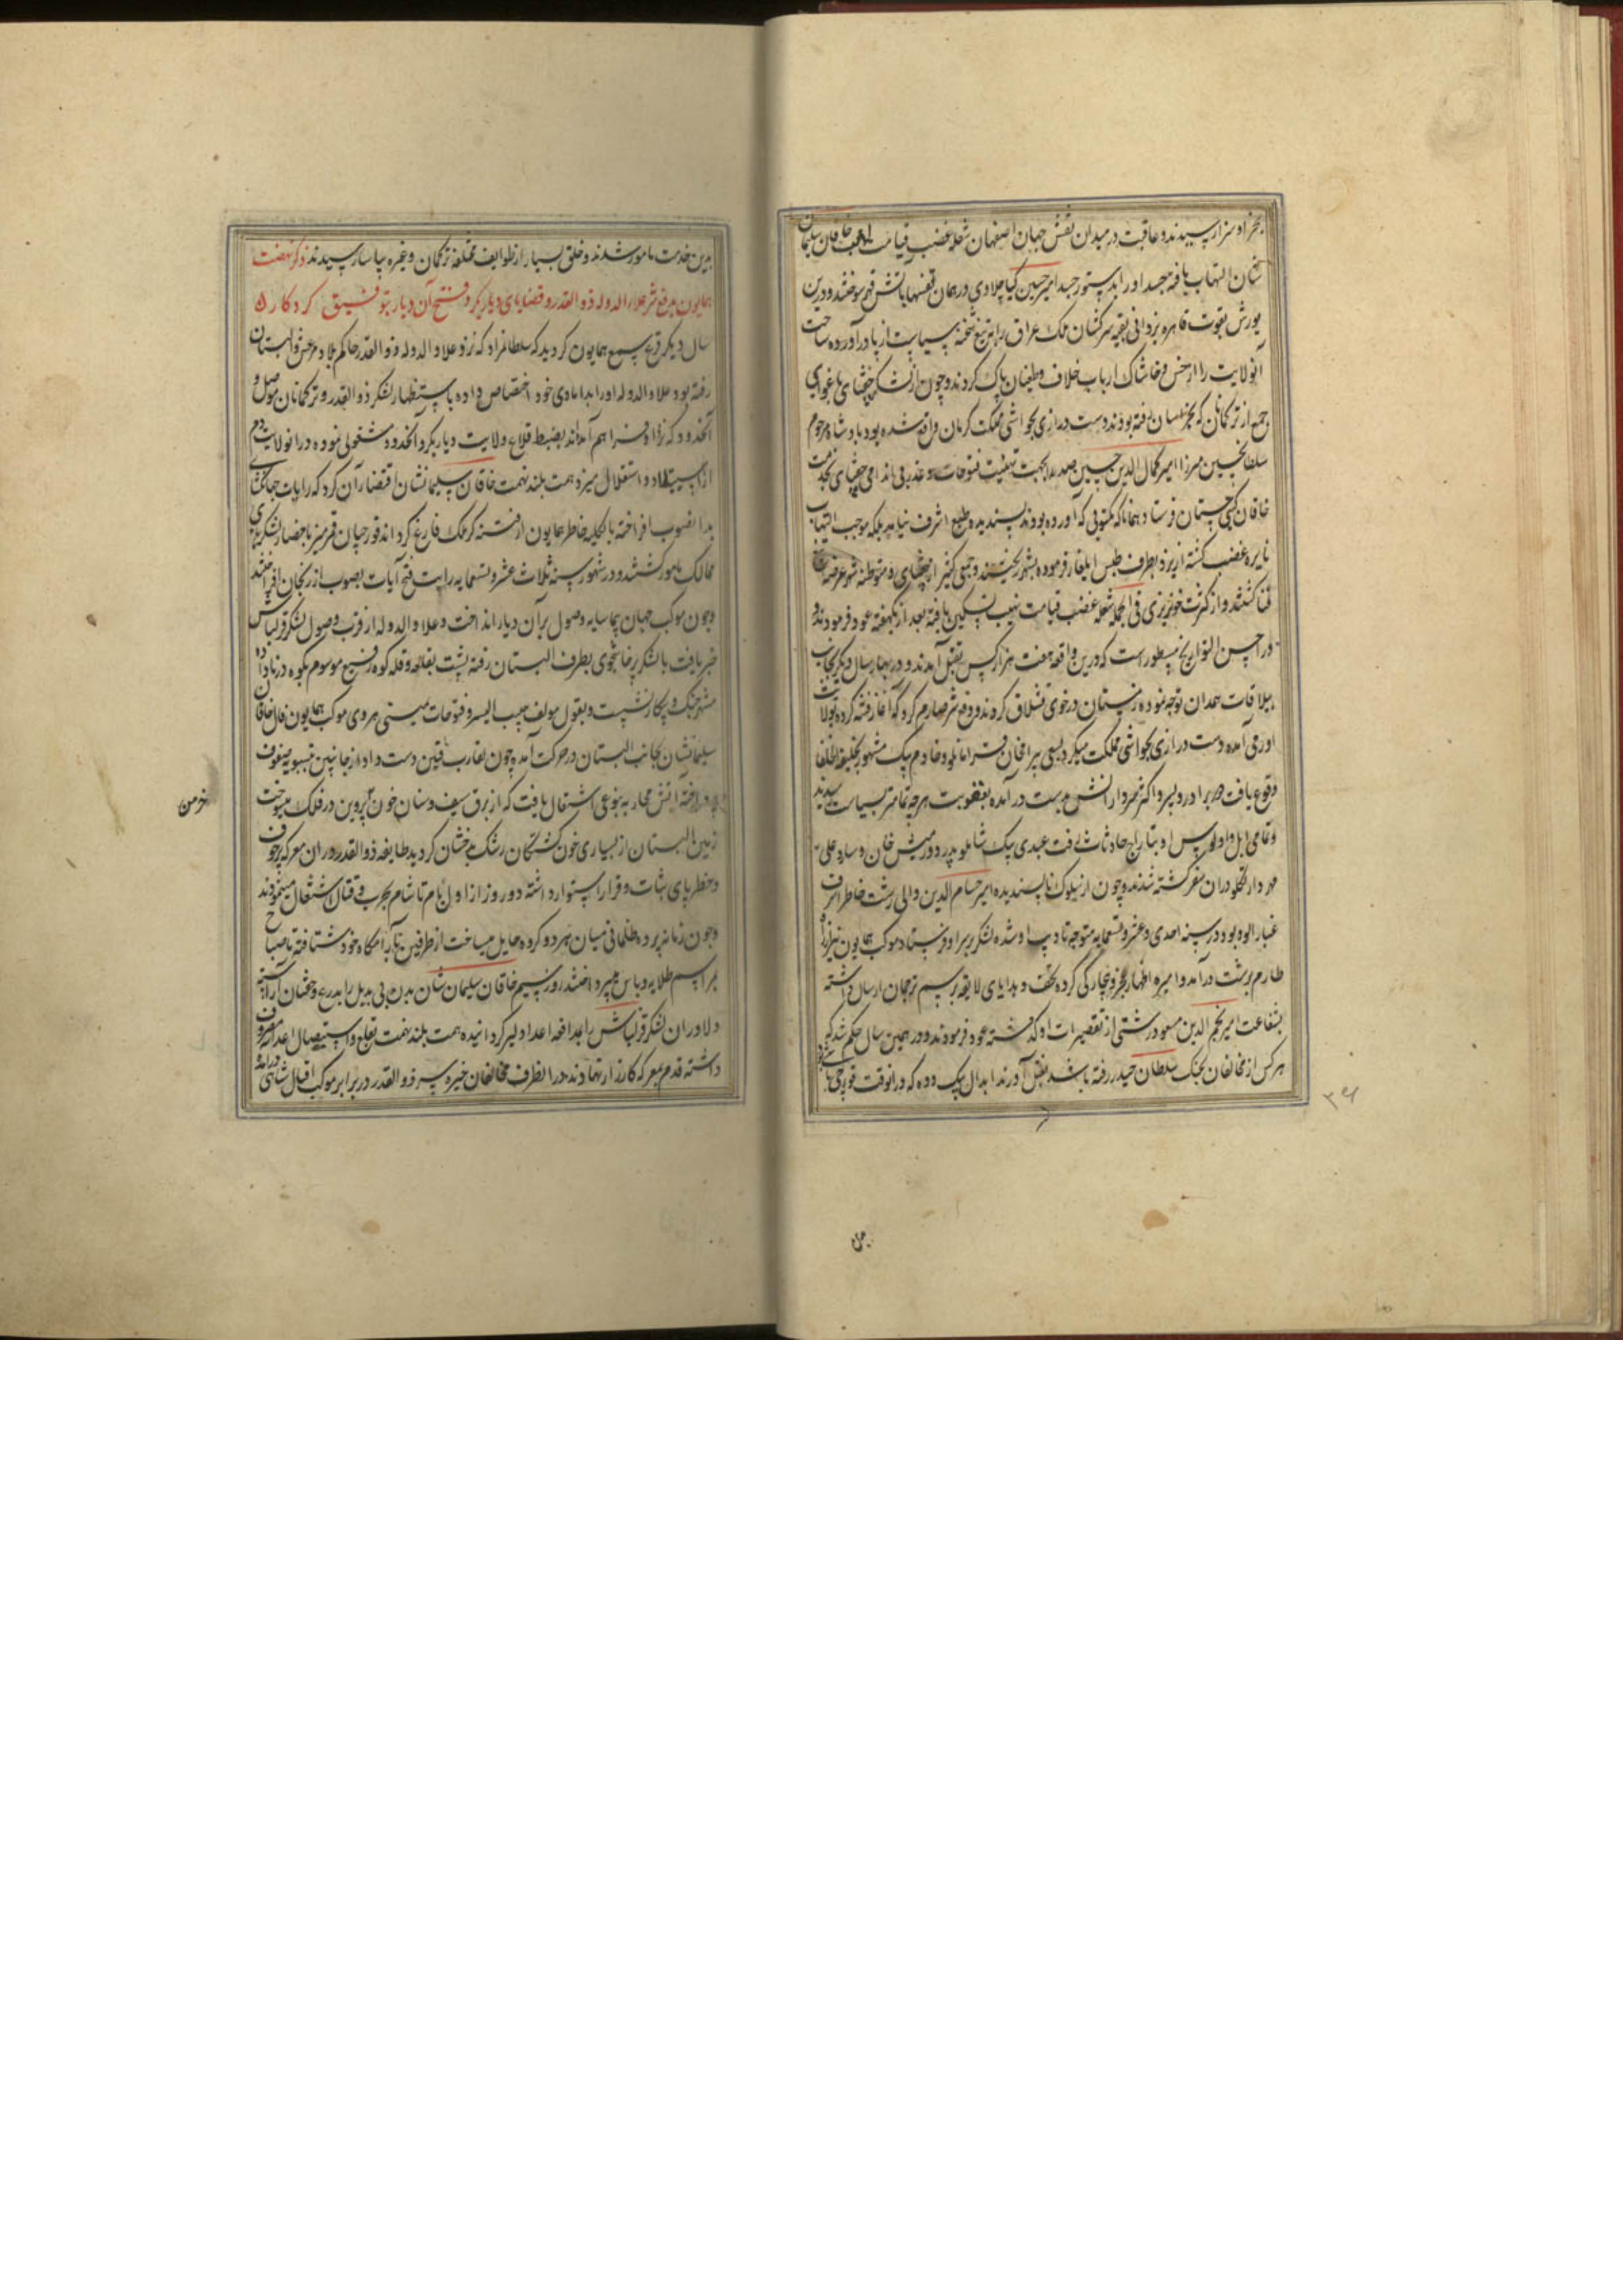 بجزا و سزا رسیدند و عاقبت در میدان نقش جهان اصفهان شعله غضب قیامت لهب خاقان سلیمان
شان التهاب یافته جسد او را بدستور جسد امیر حسین کیا چلاوی در همان قفسها بآتش قهر سوختند و درین
یورش بقوت قاهره یزدانی بقیه سرکشان ملک عراق را بتیغ شحنه سیاست از پا درآورده ساحت
آنولایت را از خس و خاشاک ارباب خلاف و طغیان پاک کردند و چون از لشکر چغتای باغوای
جمعی از ترکمانان که بخراسان رفته بودند دست درازی بحواشی مملکت کرمان واقع شده بود پادشاه مرحوم
سلطانحسین میرزا امیر کمال الدین حسین صدر را بجهت تهنیت فتوحات و عذر بی اندامی چغتای بخدمت
خاقان گیتی ستان فرستاد همانا که مکتوبی که آورده بودند پسندیده طبع اشرف نیامد بلکه موجب التهاب
نایره غضب گشته از یزد بطرف طبس ایلغار فرموده بشهر ریختند و جمعی کثیر از چغتای و متوطنه شهر عرضه
فنا گشتند و از کثرت خونریزی فی الجمله شعله غضب قیامت نهیب تسکین یافته بعد از یکهفته عود فرمودند و
در احسن التواریخ مسطور است که درین واقعه هفت هزار کس بقتل آمدند و در بهار سال دیگر بجانب
ییلاقات همدان توجه نموده زمستان در خوی قشلاق کردند و دفع شر صارم کرد که آغاز فتنه کرده بولایت
اورمی آمده دست درازی بحواشی مملکت میکرد بسعی بیرامخان قرامانلو و خادم بیک مشهور بخلیفة الخلفا
وقوع یافت و برادر و پسر و اکثر سردارانش بدست درآمده بعقوبت هرچه تمامتر بسیاست رسیدند
و تمامی ایل و اولوس او بتاراج حادثات رفت عبدی بیک شاملو پدر دورمیش خان و سارو علی
مهردار تکلو در آن سفر کشته شدند و چون از سلوک ناپسندیده امیر حسام الدین والی رشت خاطر اشرف
غبارآلوه بود در سنه احدی و عشر و تسعمایه متوجه تادیب او شده لشکر بر سر او فرستاد موکب همایون نیز از راه
طارم برشت درآمد و امیره اظهار عجز و بیچارگی کرده تحف و هدایای لایقه برسم ترجمان ارسال داشته
بشفاعت امیر نجم الدین مسعود رشتی از تقصیرات او گذشته عود فرمودند و در همین سال حکم شد که
هر کس از مخالفان بجنگ سلطان حیدر رفته باشد بقتل آورند ابدال بیک دده که در آنوقت قورچی باشی بود
۳۶
بدین
بدین خدمت مامور شدند و خلق بسیار از طوایف مختلفه ترکمان و غیره بیاسا رسیدند ذکر نهضت
همایون بدفع شر علاء الدوله ذو القدر و قضایای دیاربکر و فتح آن دیار بتوفیق کردکار
سال دیگر قرع سمع همایون گردید که سلطانمراد که نزد علاء الدوله ذو القدر حاکم بلاد مرعش و البستان
رفته بود علاء الدوله او را بدامادی خود اختصاص داده باستظهار لشکر ذو القدر و ترکمانان موصل و
آنحدود که نزد او فراهم آمده‌اند بضبط قلاع ولایت دیاربکر و آنحدود مشغولی نموده در آنولایت دم
از استیلا و استقلال میزند همت بلند نهمت خاقان سلیمانشان اقتضاء آن کرد که رایات جهانگشا
بدانصوب افراخته بالکلیه خاطر همایون از فتنه گر ملک فارغ گرداند قورچیان قمرمنیر باحضار لشکریان
ممالک مامور گشتند و در شهور سنه ثلاث عشر و تسعمایه رایت فتح آیات بصوب ارزنجان افراختند
و چون موکب جهان پیما سایه وصول بر آن دیار انداخت و علاء الدوله از قرب وصول لشکر قزلباش
خبر یافت با لشکر پرخاشجوی بطرف البستان رفته پشت بقلعه و قله کوه رفیع موسوم بکوه درنا داده
مستعد جنگ و پیکار نشست و بقول مولف حبیب السیر و فتوحات مینی هروی موکب همایون فال خاقان
سلیمانشان بجانب البستان در حرکت آمد چون تقارب فئتین دست داد از جانبین بتسویه صفوف
پرداخته آتش محاربه بنوعی اشتعال یافت که از برق سیف و سنان خون پروین در فلک میسوخت
خرمن
زمین البستان از بسیاری خون کشتگان رشک بدخشان گردید طایفه ذو القدر در آن معرکه پرخوف
و خطر پای ثبات و قرار استوار داشته دو روز از اول بام تا شام بحرب و قتال اشتغال مینمودند
و چون زمانه پرده ظلمانی میان هر دو گروه حایل میساخت از طرفین بآرامگاه خود شتافته تا صباح
بمراسم طلایه و پاس میپرداختند روز سیم خاقان سلیمان شان بدن بی بدیل را بدرع و خفتان آراسته
دلاوران لشکر قزلباش را بمدافعه اعدا دلیر گردانیده همت بلند نهمت بقلع و استیصال اعدا مصروف
داشته قدم بمعرکه کارزار نهادند و از آنطرف مخالفان خیره سر ذو القدر در برابر موکب اقبال شاهی درآمده